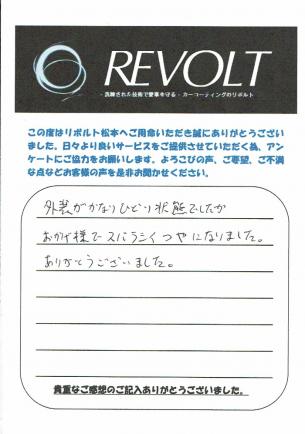 REVOLT
- 洗練された技術で愛車を守る - カーコーティングのリボルト
この度はリボルト松本へご用命いただき誠にありがとうござい
ました。日々より良いサービスをご提供させていただく為、アン
ケートにご協力をお願いします。よろこびの声、ご要望、ご不満
な点などお客様の声を是非お聞かせください。
外装がかなりひどい状態でしたが
おかげ様でスバラシくつやになりました。
ありがとうございました。
貴重なご感想のご記入ありがとうございました。